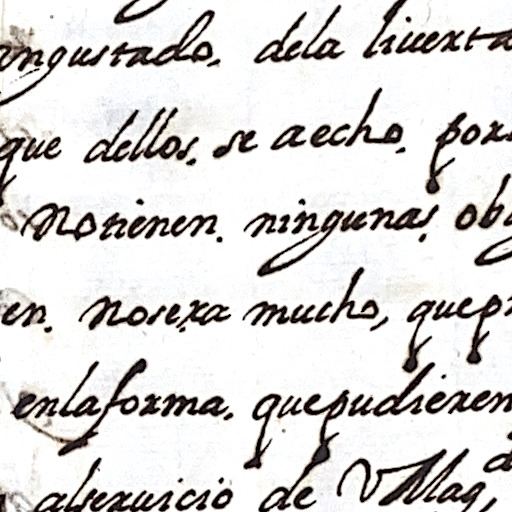 angustado. dela liuerta
que dellos. se a echo. por
No tienen. ningunas. ob
en. no sera mucho, que p
en la forma. que pudieren
al seruicio de VMag^d,